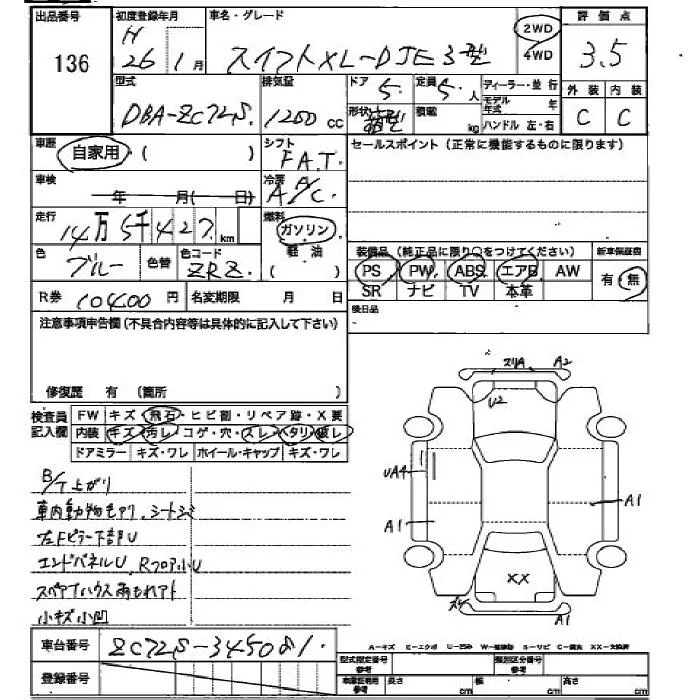 出品番号 初度登録年月 車名・グレード 評価点
136 H 26年 1月 スイフト XL-DJE 3型 2WD 4WD 3.5
型式 排気量 ドア 定員 ディーラー・並行 外装 内装
DBA-ZC72S 1200cc 5 5人 モデル年式 年
形状 積載 kg ハンドル 左・右 C C
車歴 自家用 ( ) シフト F.A.T. セールスポイント (正常に機能するものに限ります)
車検 年 月( 日) 冷房 A/C
走行 14万5千427km 燃料 ガソリン
軽油
色 ブルー 色替 色コード ZRZ ( ) 装備品 (純正品に限り○をつけてください) 新車保証書
PS PW ABS エアB AW 有・無
R券 10400円 名変期限 月 日 SR ナビ TV 本革
注意事項申告欄 (不具合内容等は具体的に記入して下さい) 後日品
修復歴 有 (箇所 )
検査員記入欄 FW キズ・飛石・ヒビ割・リペア跡・X要
内装 キズ・汚レ・コゲ・穴・スレ・ヘタリ・破レ
ドアミラー キズ・ワレ ホイール・キャップ キズ・ワレ
スリA A2
U2
UA4
A1 A1
XX
A1
B/T上がり
車内動物毛アリ、シートシミ
左Fピラー下部U
エンドパネルU、Rフロア小U
スペアTハウス雨もれアト
小キズ小凹
車台番号 ZC72S-345081
登録番号
A-キズ E-エクボ U-凹み W-補修跡 S-サビ C-腐食 XX-交換済
型式指定番号 参考 類別区分番号 参考
車庫証明用 参考 長さ cm 幅 cm 高さ cm